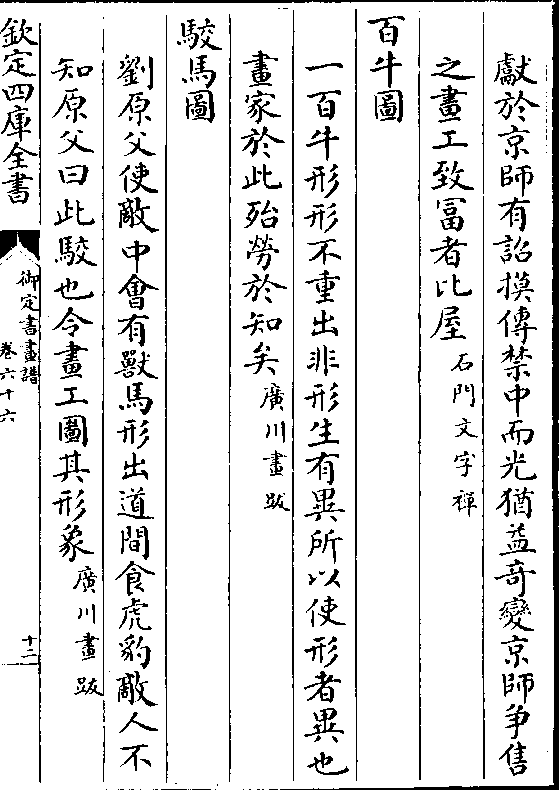 獻於京師有詔摸傳禁中而光猶益竒變京師争售
之畫工致冨者比屋石門文字禪
百牛圖
一百牛形形不重出非形生有異所以使形者異也
畫家於此殆勞於知矣廣川畫䟦
駮馬圖
劉原父使敵中會有獸馬形出道間食虎豹敵人不
知原父曰此駮也令畫工圖其形象廣川畫䟦
欽定四庫全書
御定書畫譜
卷六十六
十二